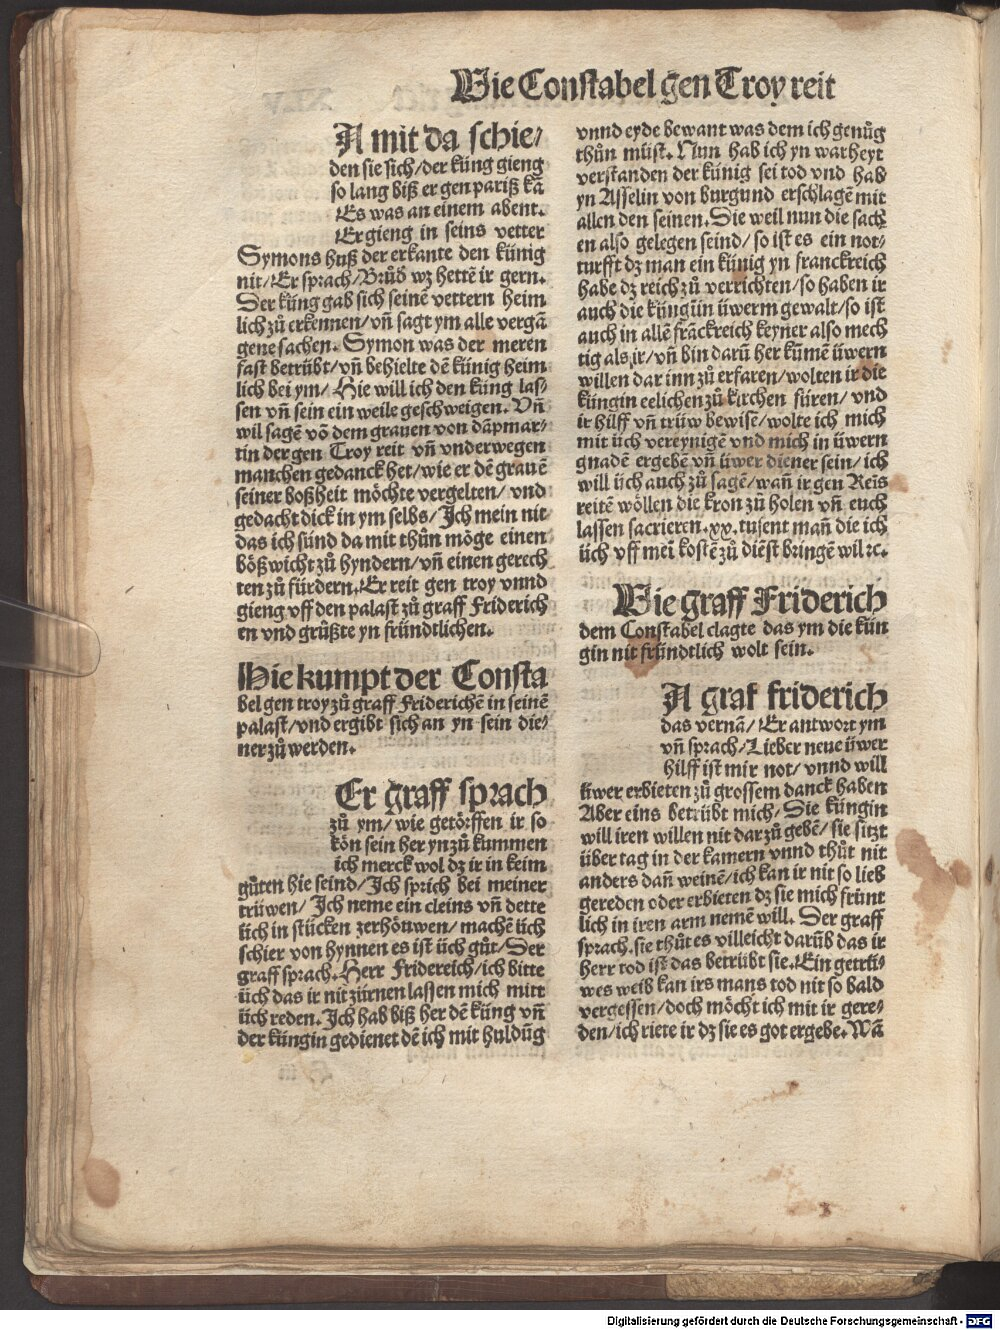 Wie Constabel gen Troy reit
A mit da schie/
den sie sich/der küng gieng
so lang biß er gen pariß kā
Es was an einem abent.
Er gieng in seins vetter
Symons huß der erkante den künig
nit/Er sprach/Brůd wz hettē ir gern.
Der küng gab sich seinē vettern heim
lich zů erkennen/vñ sagt ym alle vergā
gene sachen. Symon was der meren
fast betrübt/vñ behielte dē künig heim
lich bei ym/ Hie will ich den küng las-
sen vñ sein ein weile geschweigen. Vñ
wil sagē vō dem grauen von dāpmar-
tin der gen Troy reit vñ vnderwegen
manchen gedanck het/wie er dē grauē
seiner boßheit möchte vergelten/ vnd
gedacht dick in ym selbs/Ich mein nit
das ich sünd da mit thůn möge einen
bößwicht zů hyndern/vñ einen gerech
ten zů fürdern.Er reit gen troy vnnd
gieng vff den palast zů graff Friderich
en vnd grüßte yn fründtlichen.
Hie kumpt der Consta
bel gen troy zů graff Friderichē in seinē
palast/vnd ergibt sich an yn sein die-
ner zů werden.
Er graff sprach
zů ym/ wie getörffen ir so
kön sein her yn zů kummen
ich merck wol dz ir in keim
gůten hie seind/Ich sprich bei meiner
trüwen/ Ich neme ein cleins vñ dette
üch in stücken zerhöuwen/ machē üch
schier von hynnen es ist üch gůt/Der
graff sprach.Herr Fridereich/ich bitte
üch das ir nit zürnen lassen mich mitt
üch reden.Ich hab biß her dē küng vñ
der küngin gedienet dē ich mit huldūg
vnnd eyde bewant was dem ich genůg
thůn müst. Nun hab ich yn warheyt
verstanden der künig sei tod vnd hab
yn Asselin von burgund erschlagē mit
allen den seinen. Die weil nun die sach
en also gelegen seind/ so ist es ein not-
turfft dz man ein künig yn franckreich
habe dz reich zů verrichten/so haben ir
auch die küngūn üwerm gewalt/so ist
auch in allē frāckreich keyner also mech
tig als ir/vñ bin darū her kūmē üwern
willen dar inn zů erfaren/wolten ir die
küngin eelichen zů kirchen füren/ vnd
ir hilff vñ trüw bewisē/wolte ich mich
mit üch vereynigē vnd mich in üwern
gnadē ergebē vñ üwer diener sein/ ich
will üch auch zů sagē/wañ ir gen Reīs
reitē wöllen die kron zů holen vñ euch
lassen sacrieren.xx.tusent mañ die ich
üch vff mei kostē zů diēst bringē wil ꝛc.
Wie graff Friderich
dem Constabel clagte das ym die kün
gin nit fründtlich wolt sein.
A graf friderich
das vernā/ Er antwort ym
vñ sprach/Lieber neue üwer
hilff ist mir not/ vnnd will
üwer erbieten zů grossem danck haben
Aber eins betrübt mich/ Die küngin
will iren willen nit dar zů gebē/ sie sitzt
über tag in der kamern vnnd thůt nit
anders dañ weinē/ich kan ir nit so lieb
gereden oder erbieten dz sie mich frünt
lich in iren arm nemē will. Der graff
sprach.sie thůt es villeicht darūb das ir
herr tod ist das betrübt sie.Ein getrü-
wes weib kan irs mans tod nit so bald
vergessen/doch möcht ich mit ir gere-
den/ich riete ir dz sie es got ergebe.Wā
Digitalisierung gefördert durch die Deutsche Forschungsgemeinschaft - DFG